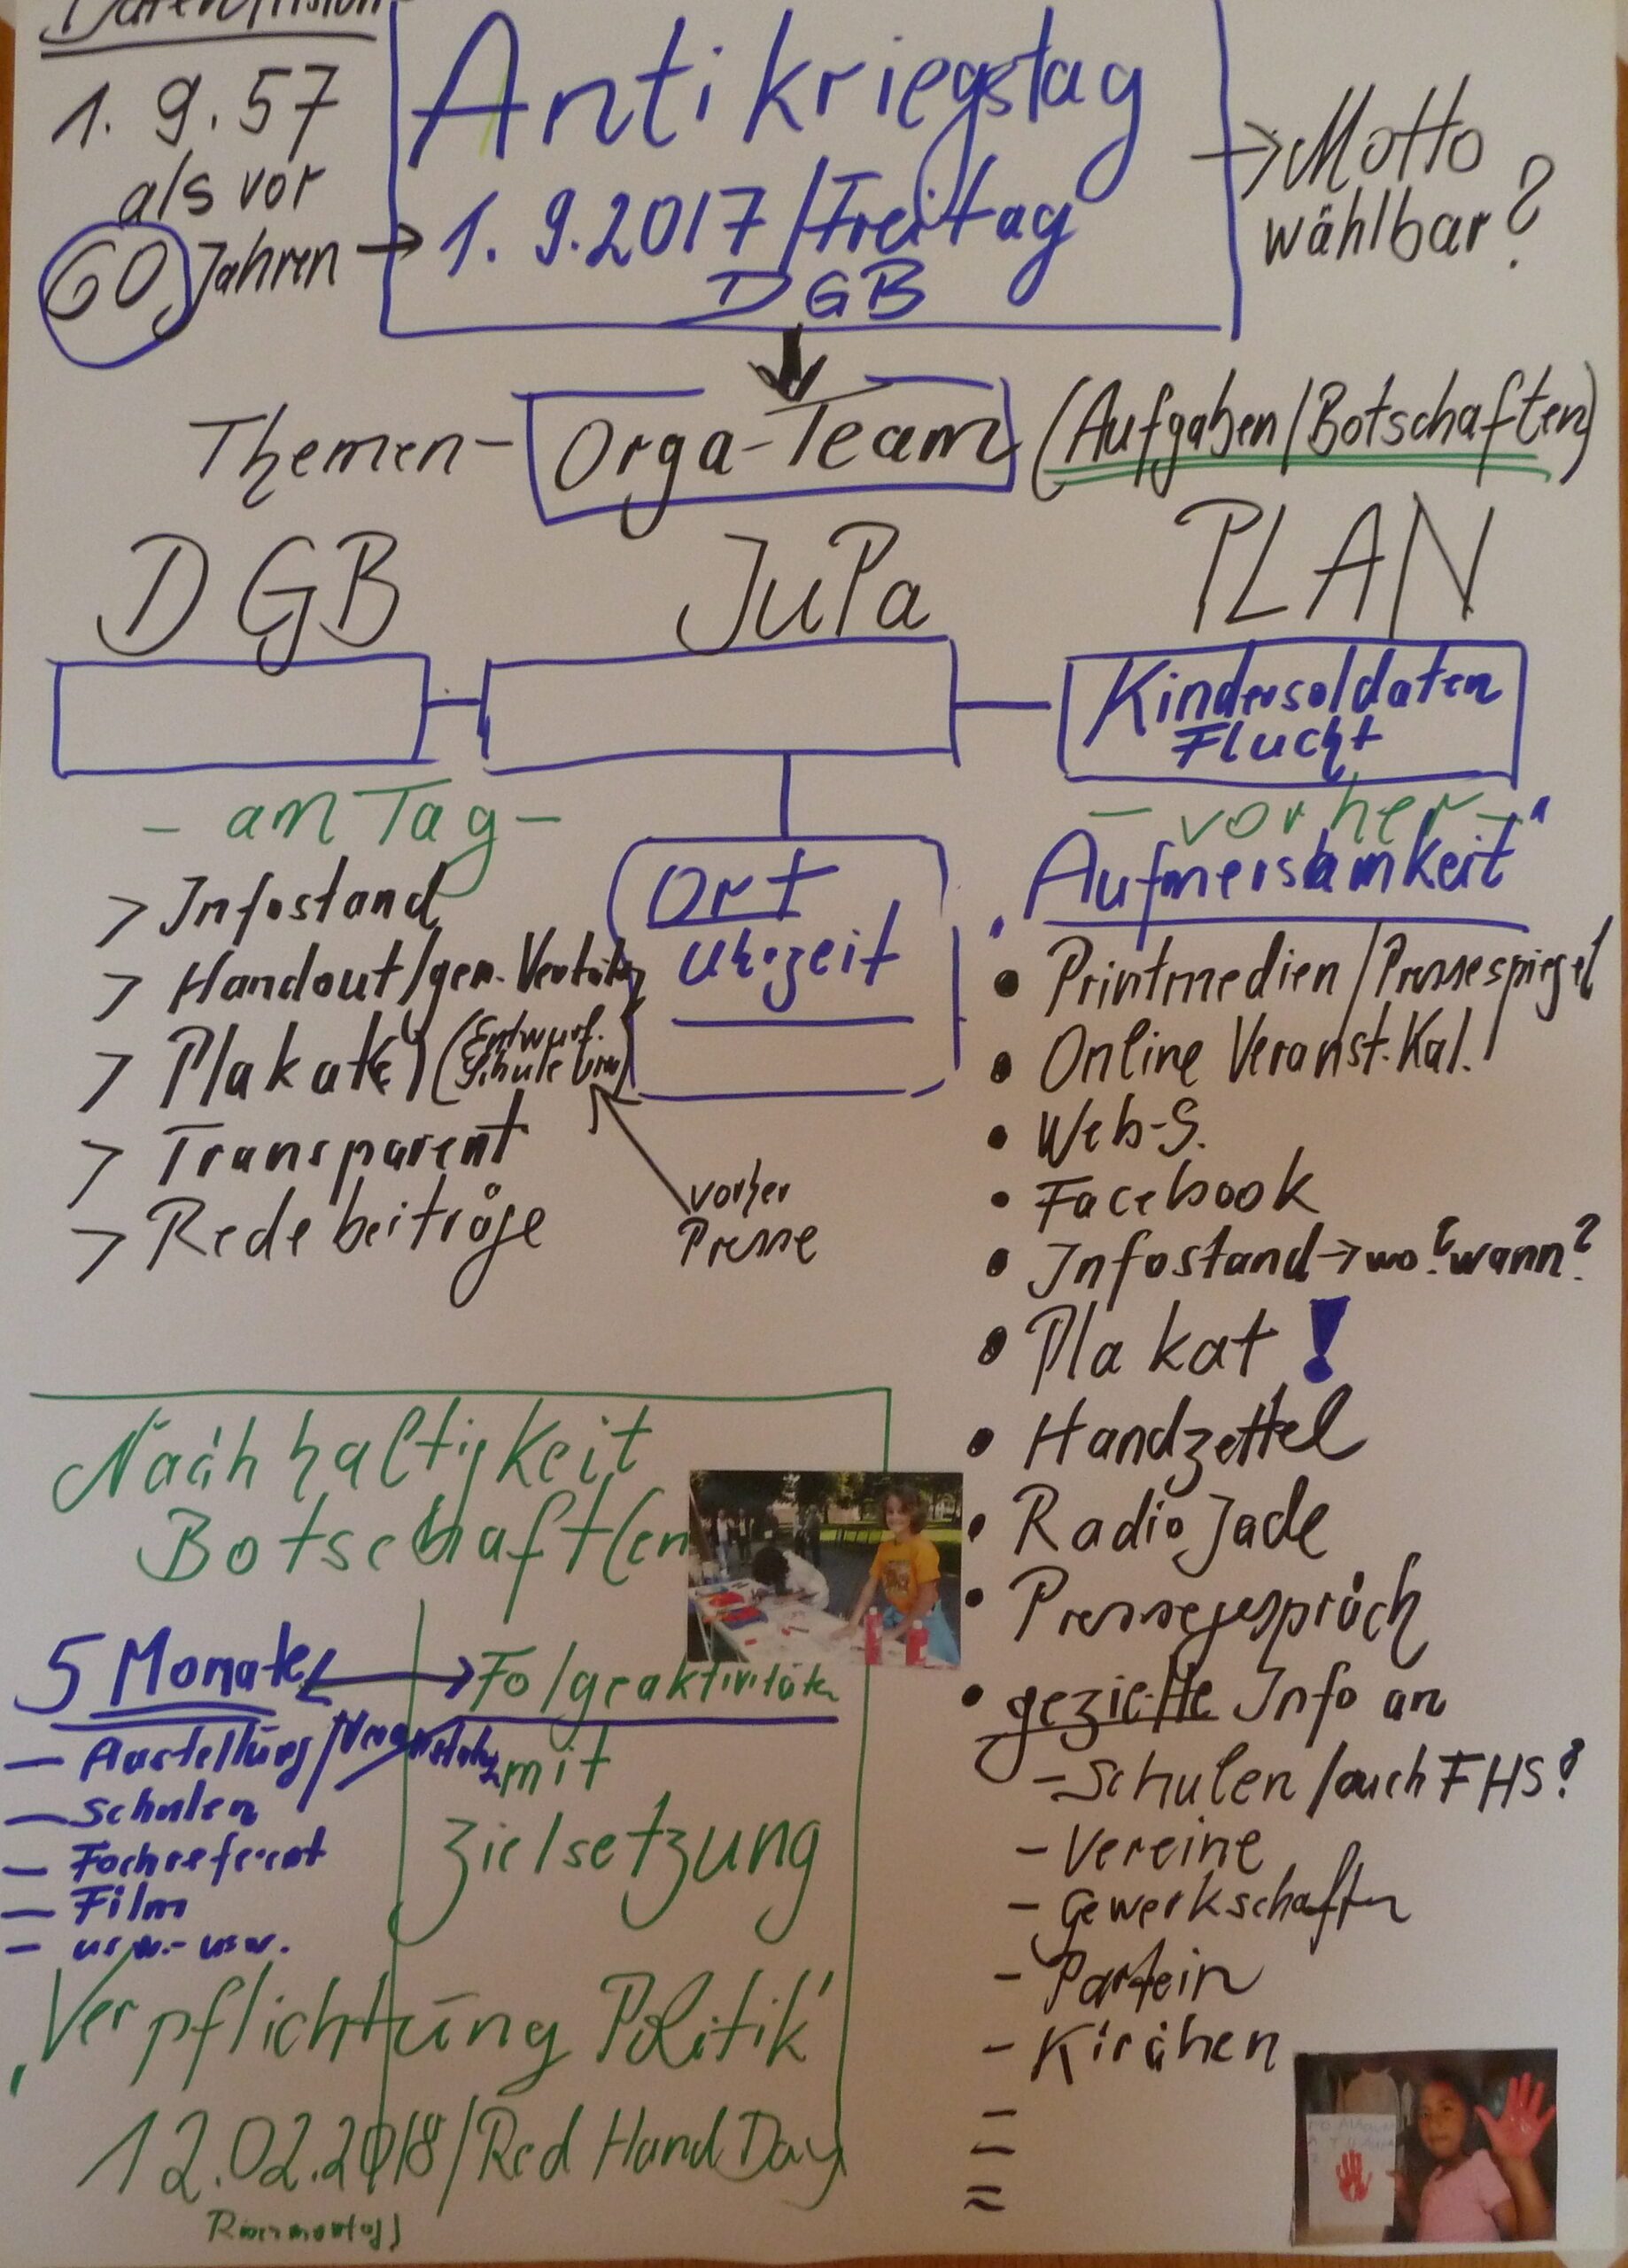 1. 9. 57
als vor
60 Jahren →
Antikriegstag
1. 9. 2017 / Freitag
DGB
→ Motto
wählbar?
Themen- Orga-Team (Aufgaben / Botschaften)
DGB
JuPa
PLAN
Kindersoldaten
Flucht
- am Tag -
> Infostand
> Handout / gem.
> Plakate (Entwurf.
Schule
> Transparent
> Redebeiträge
vorher
Presse
Ort
Uhrzeit
- vorher -
"Aufmersamkeit"
• Printmedien / Pressespiegel
• Online Veranst. Kal.!
• Web-S.
• Facebook
• Infostand → wo? wann?
• Plakat !
• Handzettel
• Radio Jade
• Pressegespräch
• gezielte Info an
- Schulen / auch FHS?
- Vereine
- Gewerkschaften
- Partein
- Kirchen
Nachhaltigkeit
Botschaft(en
5 Monate
- Austellung /
- Schulen
- Fachreferent
- Film
- usw. - usw.
Folgeaktivitäten
mit
Zielsetzung
"Verpflichtung Politik"
12.02.2018 / Red Hand Day